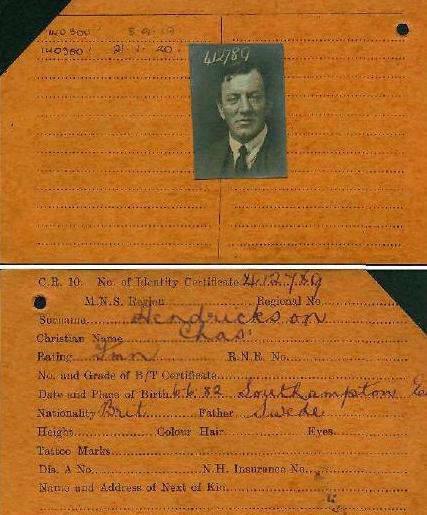 140300 8.9.19
140300 21.1.20.
412789
C.R. 10. No. of Identity Certificate 412789
M.N.S. Region Regional No
Surname Hendrickson
Christian Name Chas:
Rating Fmn R.N.R. No.
No. and Grade of B/T Certificate
Date and Place of Birth 6.6.82 Southampton
Nationality Brit Father Swede
Height Colour Hair Eyes
Tattoo Marks
Dis. A No. N.H. Insurance No.
Name and Address of Next of Kin